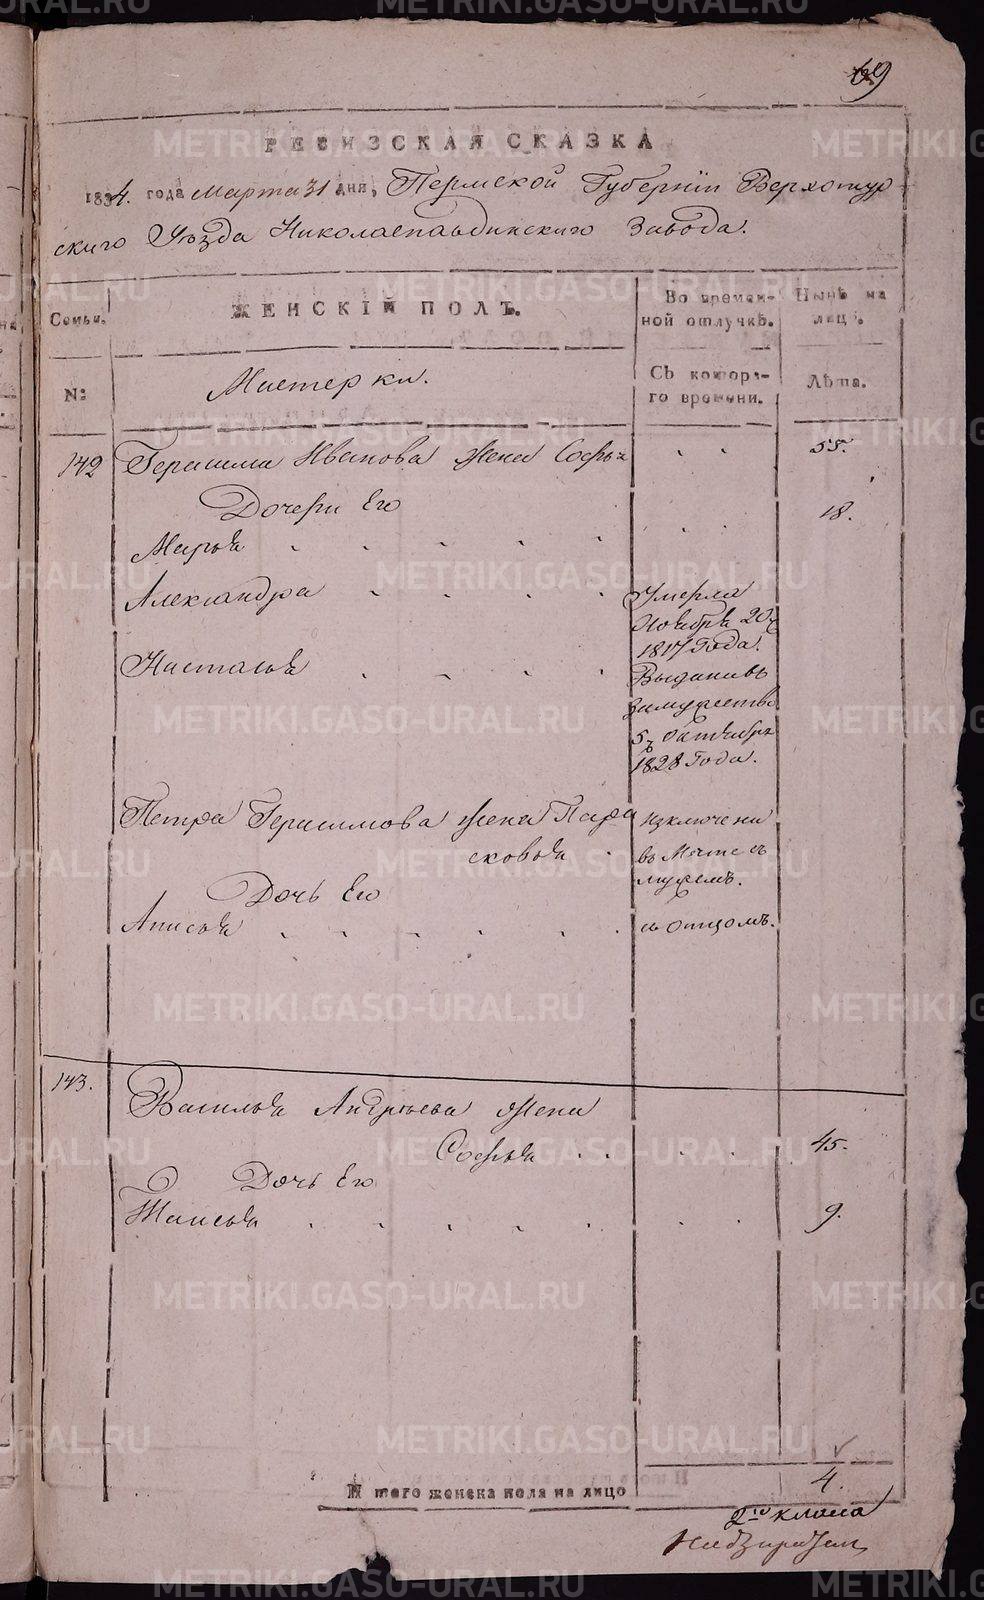 69
РЕВИЗСКАЯ СКАЗКА
1834. года Марта 31 дня, Пермской Губернiи Верхотур
скаго Уѣзда Николаепавдинскаго Завода.
Семьи.
ЖЕНСКІЙ ПОЛЪ.
Во времен-
ной отлучкѣ.
Нынѣ на
лицѣ.
N:
Мастерки.
Съ котора-
го времени.
Лѣта.
142 Герасима Иванова жена Софья 55.
Дочери Его
Марья 18.
Александра Умерла
Ноября 20
1817 Года.
Настасья Выдана въ
замужество
5ъ Октября
1828 Года.
Петра Герасимова жена Пара изключена
сковья въ Мѣсте съ
мужемъ.
Дочь Его
Анисья съ отцомъ.
143. Василья Андреева жена
Софья 45.
Дочь Его
Таисья 9.
Итого женска пола на лицо 4.
2го класа
METRIKI.GASO-URAL.RU